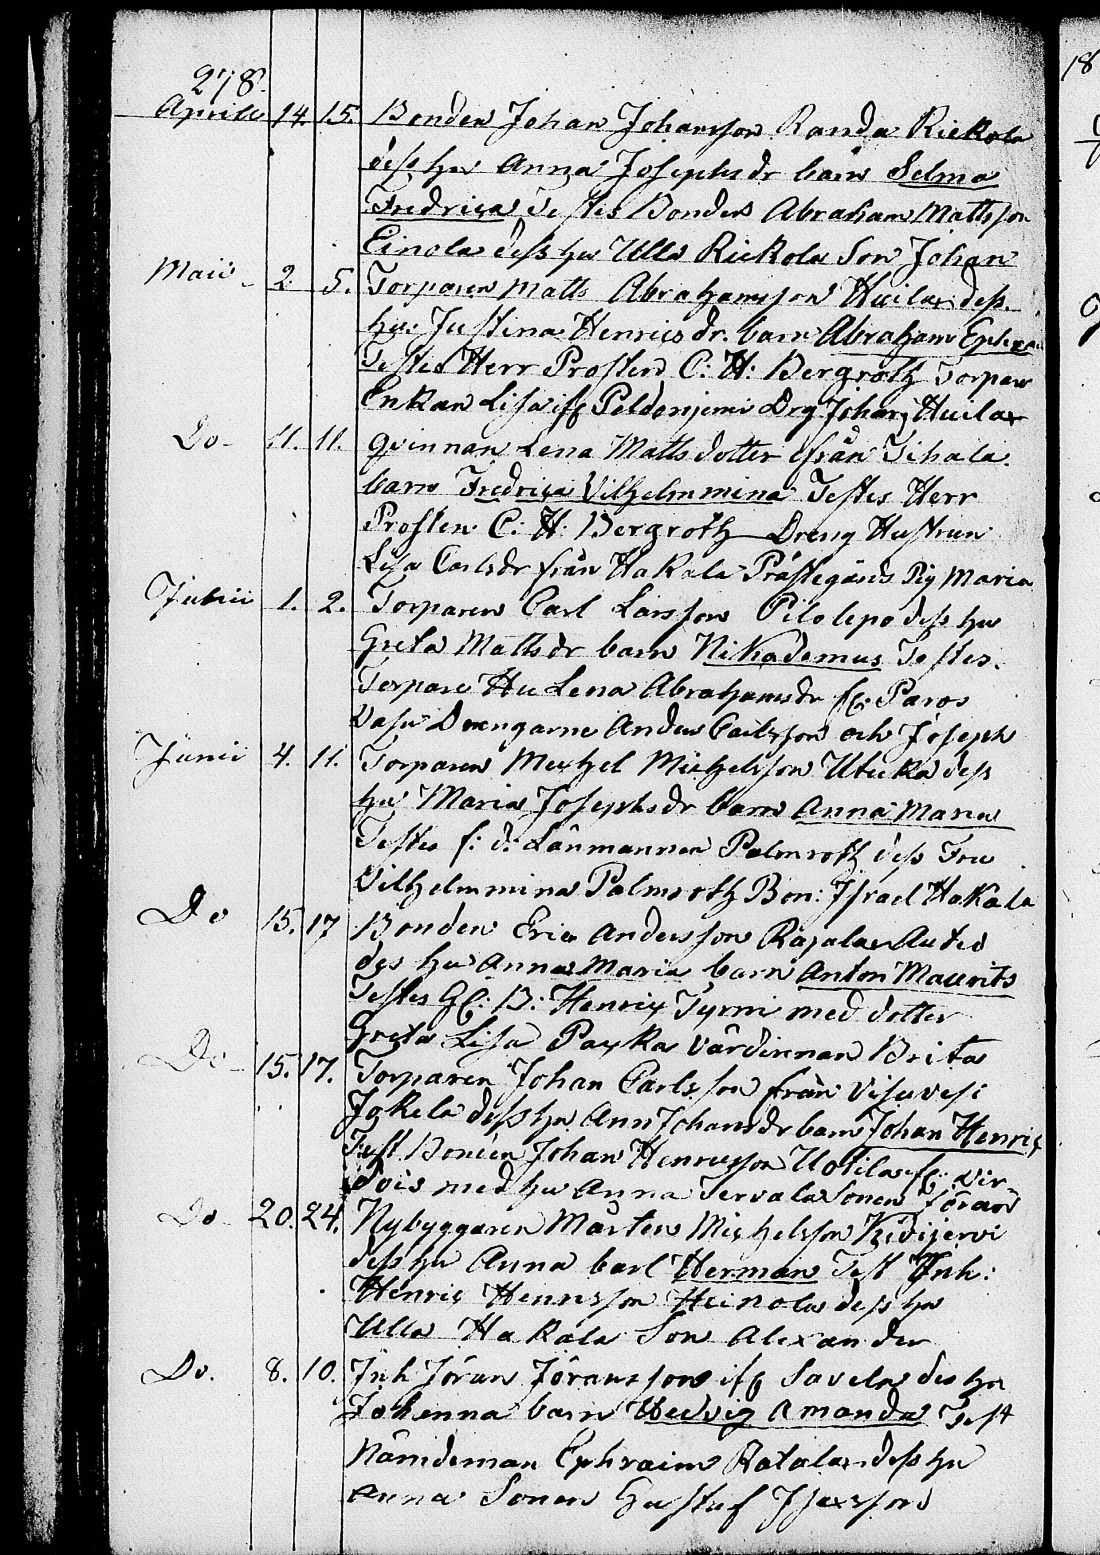 278.
Aprill 14. 15. Bonden Johan Johansson Randa Riekola
dess hu Anna Josephsdr barn Selma
Fredrica Testes Bonden Abraham Mattsson
Einola dess hu Ulla Riekola Son Johan
Maii 2. 5. Torparen Matts Abrahamsson Huilax dess
hu: Justina Henricsdr. barn Abraham Ephra
Testes Herr Prosten C: H: Bergroth Torpare
Enkan Lisa ifr Peldonjemi Drg Johan Huilax
Do 11. 11. Qvinnan Lena Mattsdotter från Tihala
barn Fredrica Vilhelmmina Testes Herr
Prosten C: H: Bergroth Dreng Hustrun
Lisa Carlsdr från Hakala Prästegårds Pig Maria
Junii 1. 2. Torparen Carl Larsson Pilolepo dess hu
Greta Mattsdr barn Nikademus Testes.
Torpare Hu Lena Abrahamsdr fr: Paros
Vasu Drengarne Anders Carlsson och Joseph
Junii 4. 11. Torparen Michel Michelsson Utuka dess
hu Maria Josephsdr barn Anna Maria
Testes f: d: Länmannen Palmroth dess Fru
Vilhelmmina Palmroth Bon: Israel Hakala
Do 15. 17 Bonden Eric Andersson Rajala Autio
des hu Anna Maria barn Anton Maurits
Testes Gl: B: Henric Tyrni med dotter
Greta Lisa Payka värdinnan Brita
Do 15. 17. Torparen Johan Carlsson från Visuvesi
Jokela dess hu Ann Johansdr barn Johan Henric
Test Bonden Johan Henricsson Uotila fr: Vir-
dois med hu Anna Tervala Sonen Jöran
Do 20. 24. Nybyggaren Mårten Michelsson Kidijervi
dess hu Anna barl Herman Test Inh:
Henric Henricsson Heinola dess hu
Ulla Hakala Son Alexander
Do. 8. 10. Inh Jöran Jöransson ifr Savela des hu
Johanna barn Hedvig Amanda Test
Nämdeman Ephraim Ratala dess hu
Anna Sonen Gustaf Isaxson
18